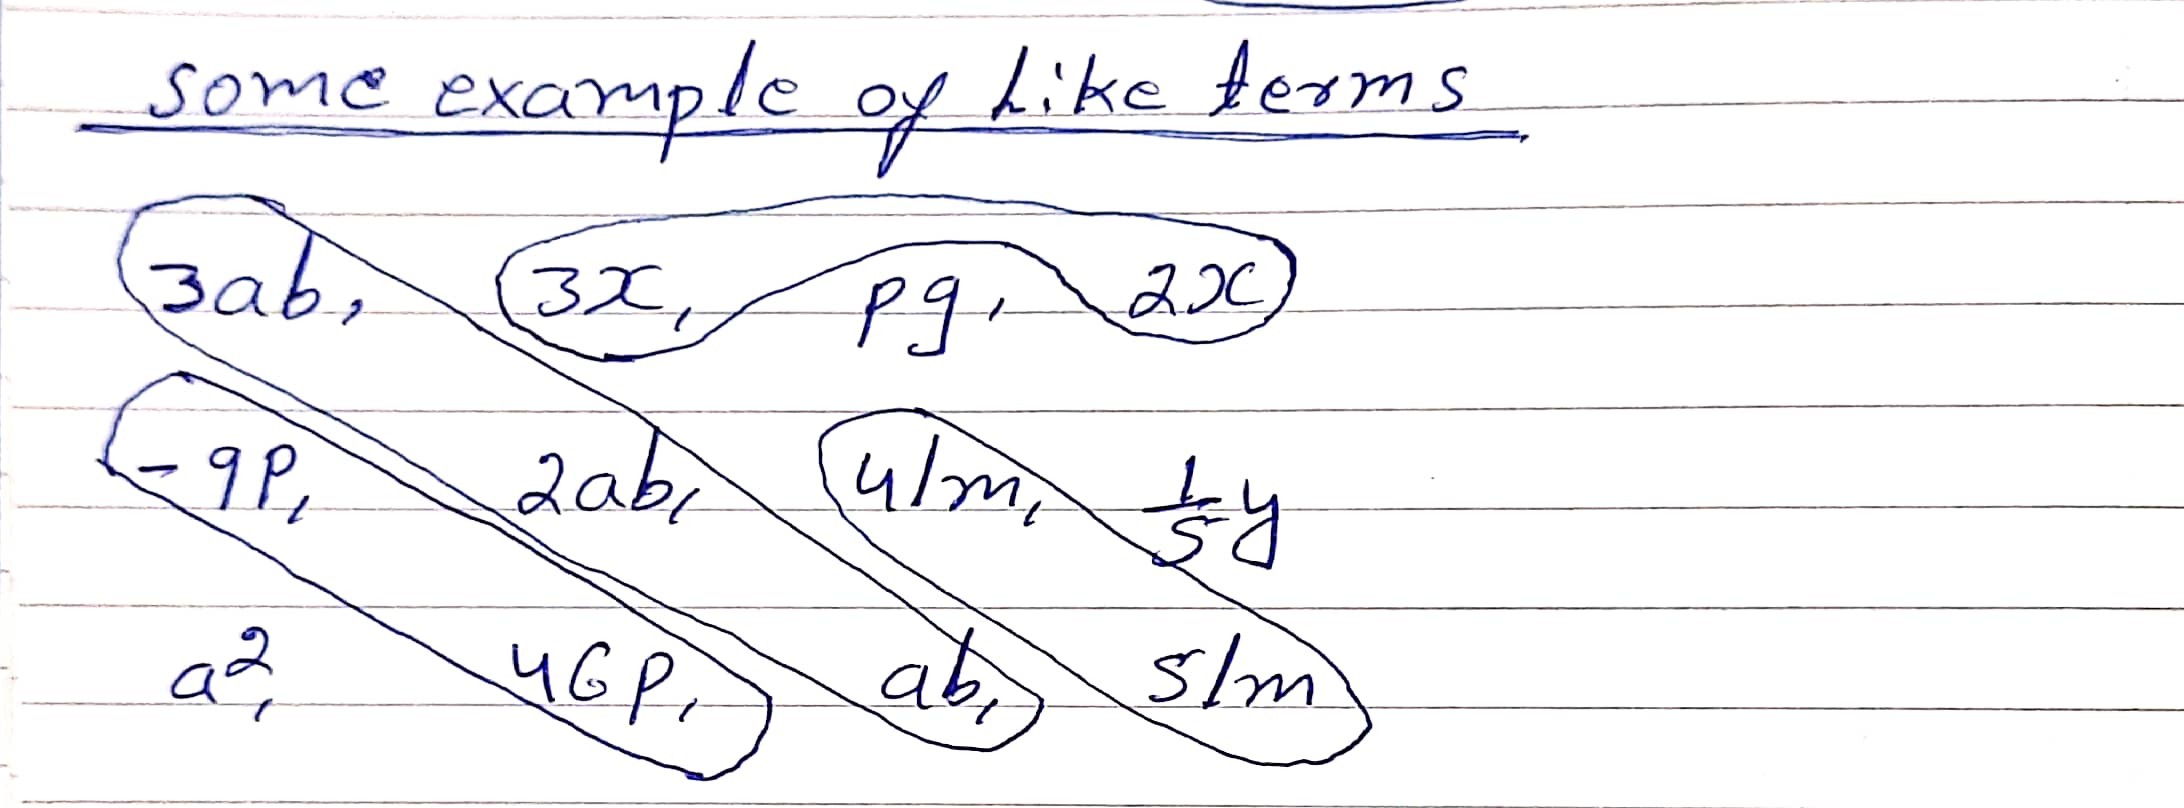 some example of Like terms
3ab, 3x, pq, 2x
-9P, 2ab, 4lm, 1/5 y
a², 46p, ab, 5lm